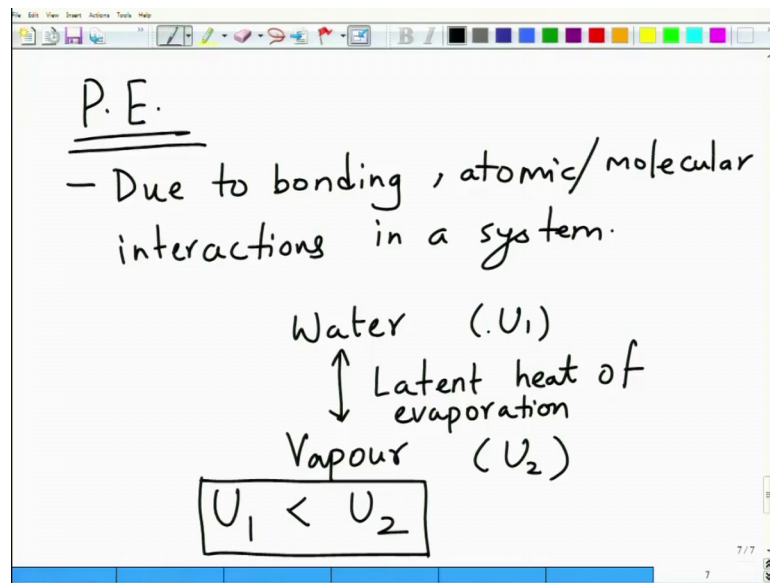 File Edit View Insert Actions Tools Help
B I
P.E.
- Due to bonding, atomic/molecular
interactions in a system.
Water (.U₁)
Latent heat of
evaporation
Vapour (U₂)
U₁ < U₂
7/7
7